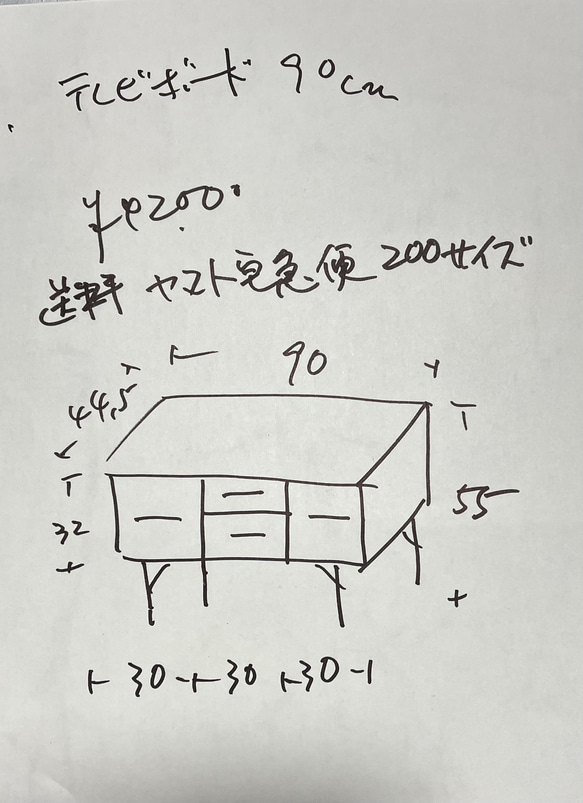 テレビボード 90cm
送料 ヤマト宅急便 200サイズ
90
44,5
32
55
30 30 30